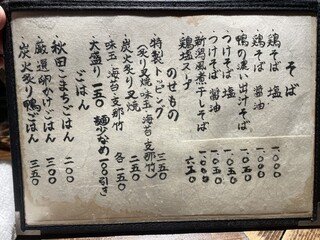 そば
鶏そば 塩 一、〇〇〇
鶏そば 醤油 一、〇〇〇
鴨の濃い出汁そば 一、〇五〇
つけそば 塩 一、〇五〇
つけそば 醤油 一、〇五〇
新潟風煮干しそば 一、〇〇〇
鶏塩スープ 六五〇
のせもの
特製トッピング 三五〇
(炙り叉焼・味玉・海苔・支那竹)
炭火炙り叉焼 二五〇
味玉・海苔・支那竹 各一五〇
大盛り 一五〇 麺少なめ 一〇〇引き
ごはん
秋田こまちごはん 二〇〇
厳選卵かけごはん 三五〇
炭火炙り鴨ごはん 三五〇